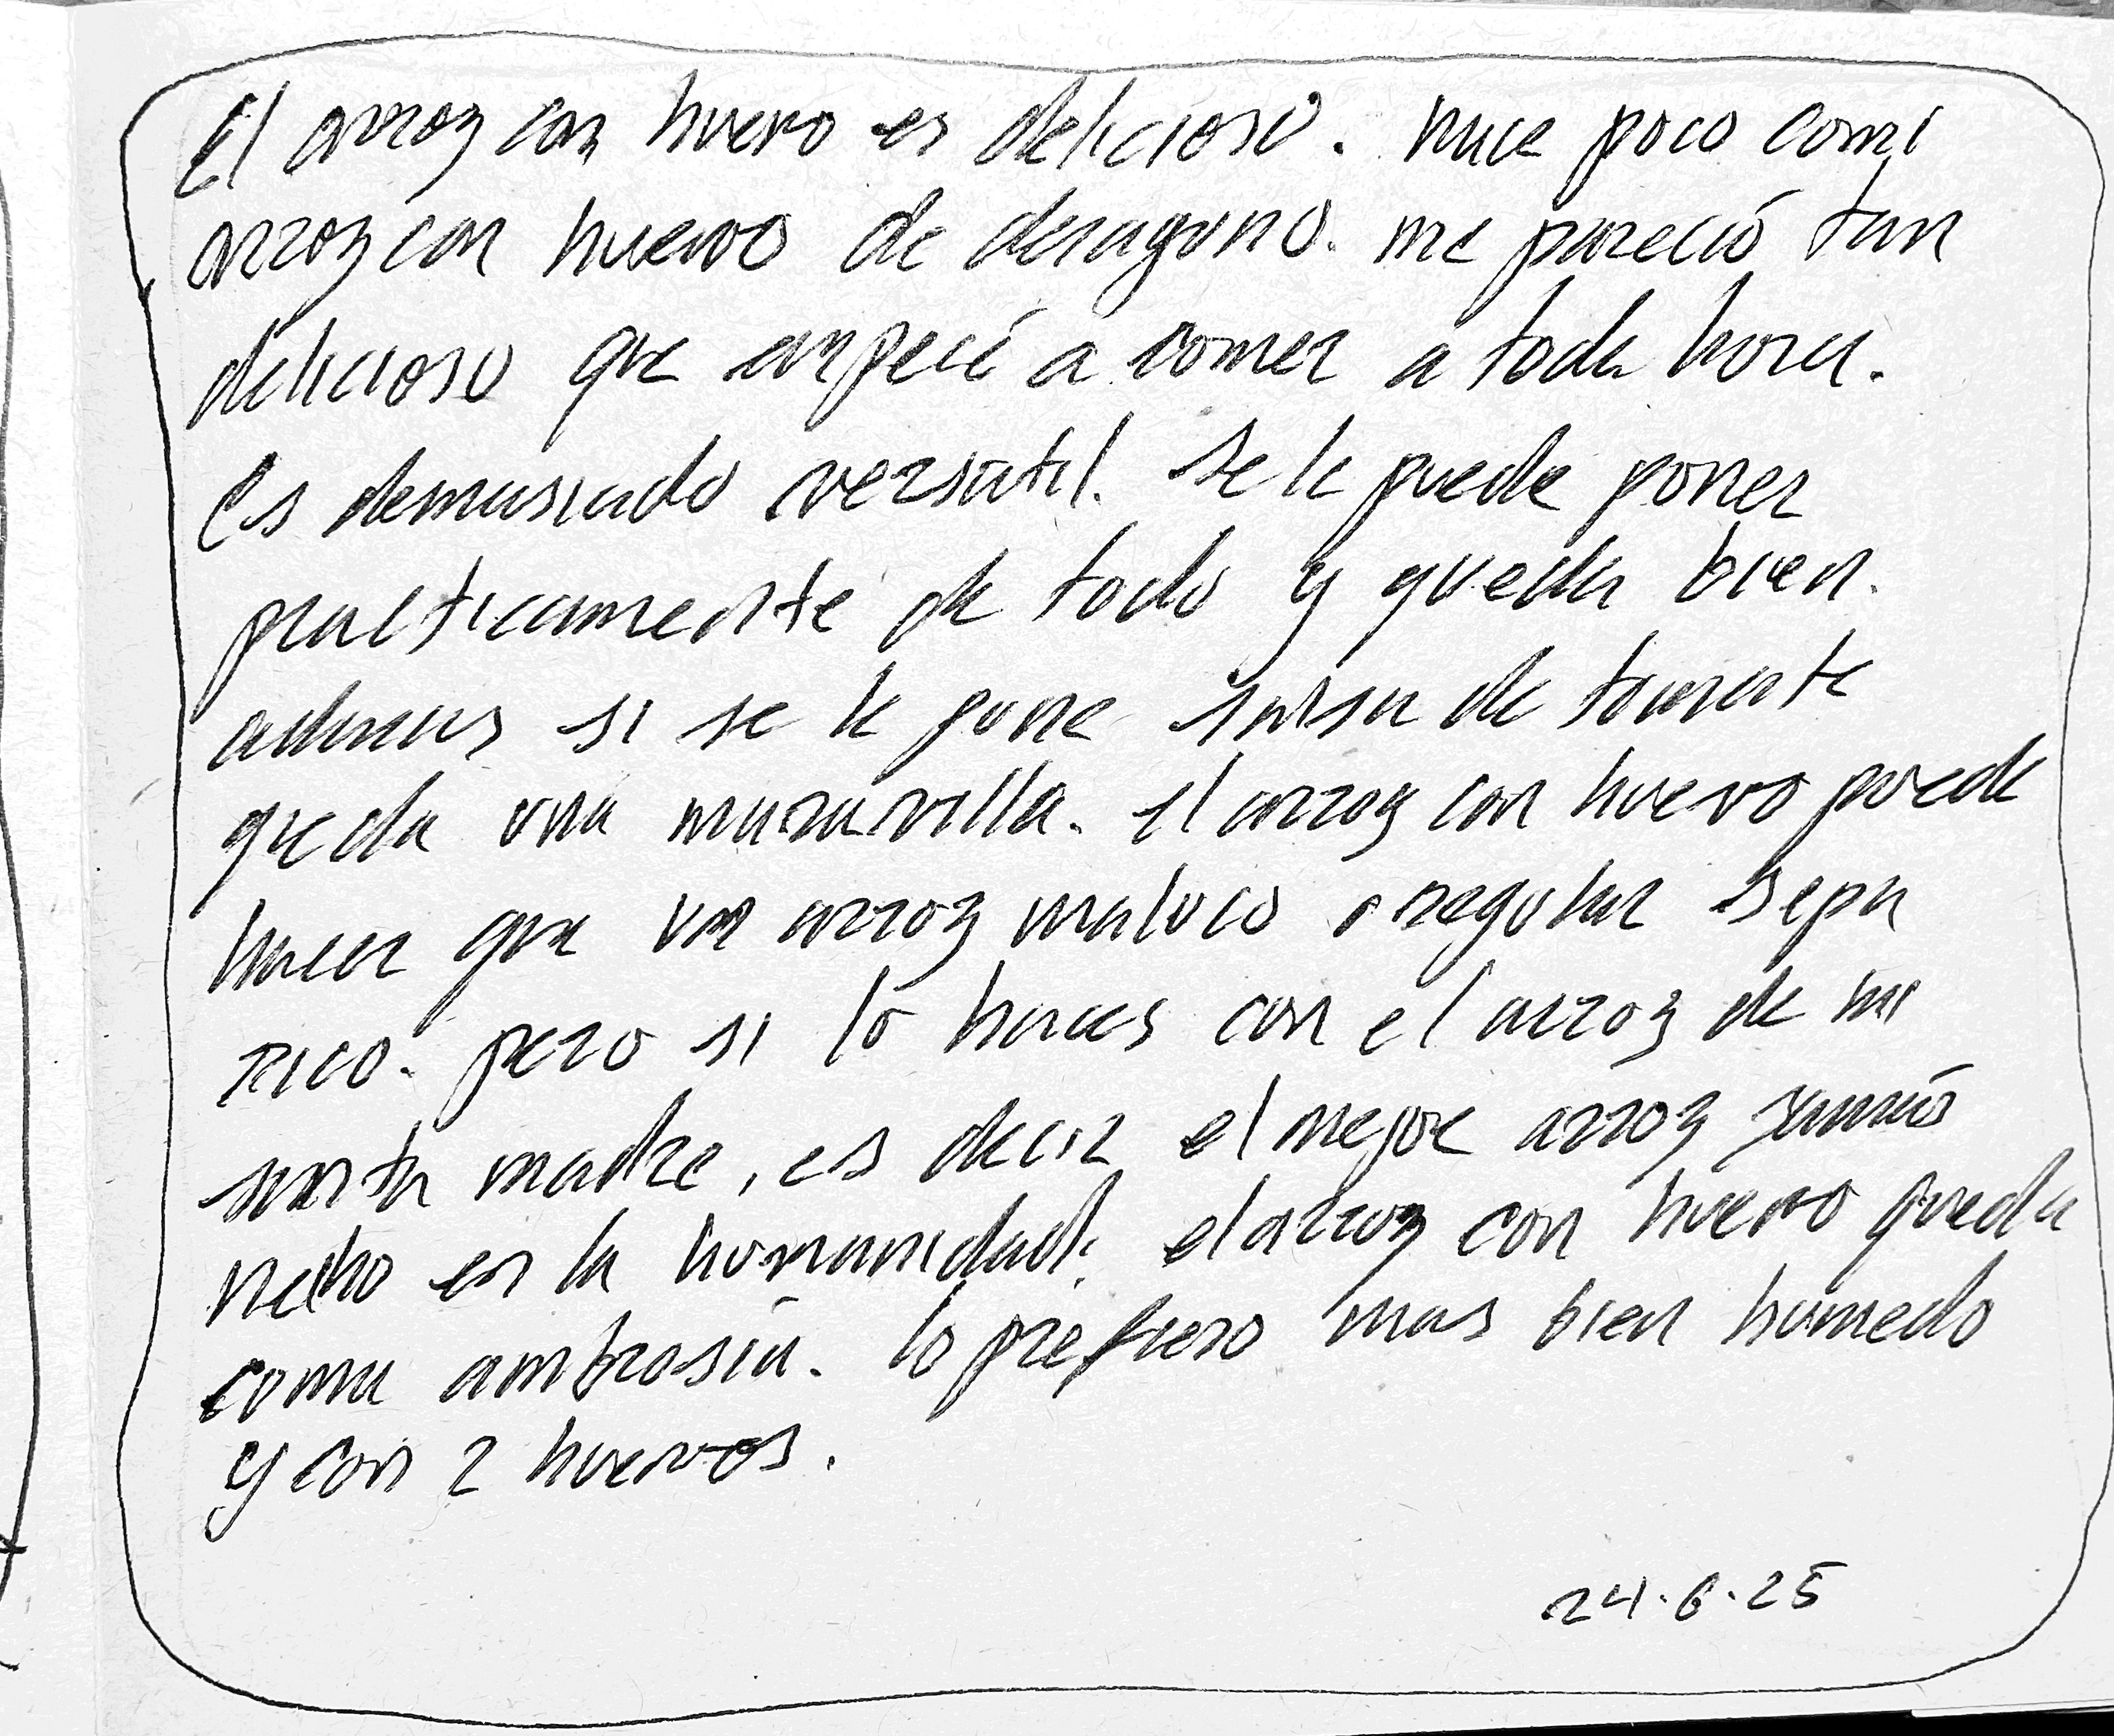 El arroz con huevo es delicioso. hace poco comí
arroz con huevo de desayuno. me pareció tan
delicioso que empecé a comer a toda hora.
Es demasiado versátil. Se le puede poner
practicamente de todo y queda bien.
ademas si se le pone salsa de tomate
queda una maravilla. el arroz con huevo puede
hacer que un arroz maluco o regular sepa
rico. pero si lo haces con el arroz de mi
santa madre, es decir el mejor arroz jamás
hecho en la humanidad, el arroz con huevo queda
como ambrosía. lo prefiero mas bien humedo
y con 2 huevos.
24.6.25